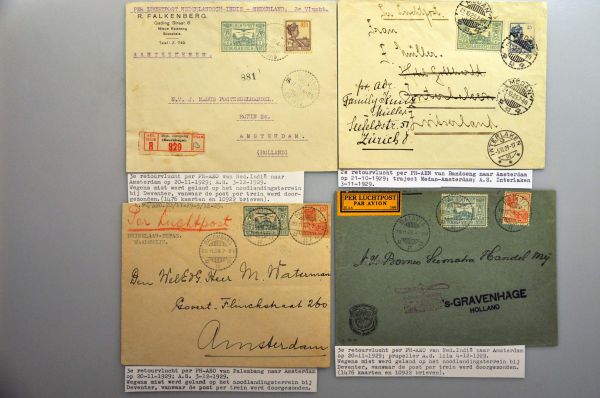 PER LUCHTPOST NEDERLANDSCH-INDIE - NEDERLAND, 3e Vlucht.
R. FALKENBERG.
Gading Straat 6
Soerabaia
Telef: Z. 740
AANTEEKENEN.
881
N.V. J. MAKUS POSTZEGELHANDEL.
ROKIN 24.
AMSTERDAM.
(HOLLAND)
R
929
3e retourvlucht per PH-AGO van Ned.Indië naar
Amsterdam op 20-11-1929; A.S. 3-12-1929.
Wegens mist werd geland op het noodlandingsterrein
bij Deventer, vanwaar de post per trein werd doorge-
zonden. (1476 kaarten en 10922 brieven).
Per Luchtpost
Frau
Z. Müller
Interlaken
pr. adr.
Family
Müller
Seefeldstr. 57
Zürich 8
MEDAN
INTERLAKEN
2e retourvlucht per PH-AEN van Bandoeng naar Amsterdam
op 21-10-1929; traject Medan-Amsterdam; A.S. Interlaken
3-11-1929.
Per Luchtpost
Den WelEdG Heer M. Waterman
Govert-Flinckstraat 260
Amsterdam
3e retourvlucht per PH-AGO van Palembang naar Amsterdam
op 20-11-1929; A.S. 3-12-1929.
Wegens mist werd geland op het noodlandingsterrein bij
Deventer, vanwaar de post per trein werd doorgezonden.
PER LUCHTPOST
PAR AVION
N.V. Borneo Sumatra Handel Mij
's-GRAVENHAGE
HOLLAND
3e retourvlucht per PH-AGO van Ned.Indië naar Amsterdam
op 20-11-1929; propeller A.S. lila 4-12-1929.
Wegens mist werd geland op het noodlandingsterrein bij
Deventer, vanwaar de post per trein werd doorgezonden.
(1476 kaarten en 10922 brieven).